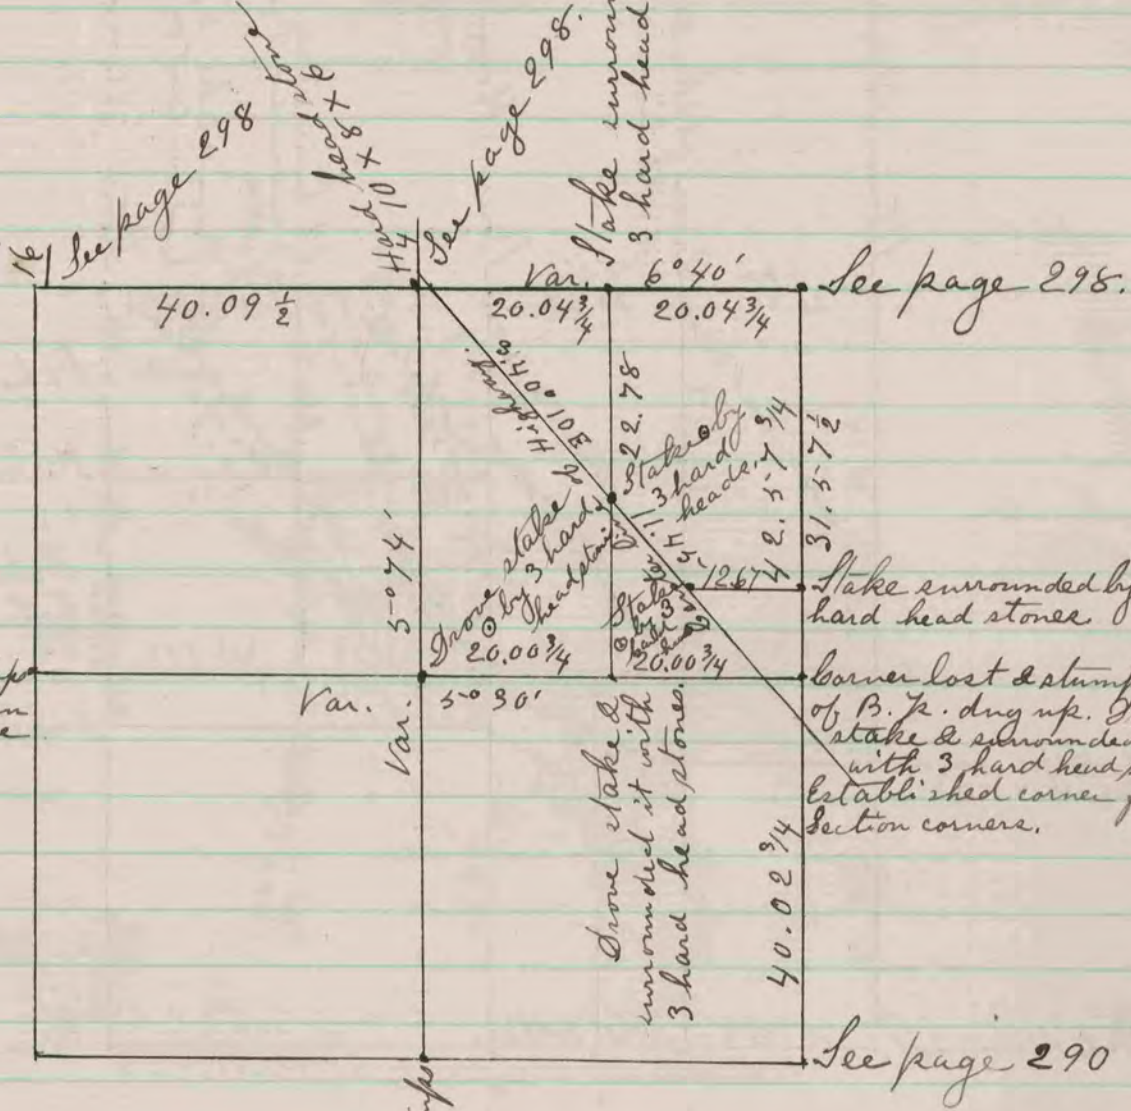 See page 298
Hard head stone
10 x 8 x 6
See page 298.
Stake surroun
3 hard head
See page 298.
Var. 6° 40'
40.09 1/2
20.04 3/4
20.04 3/4
22.78
Highway.
Stake by
3 hard
heads.
42.57 3/4
31.57 1/2
Drove stake
by 3 hard
head stones
12.67
Stake surrounded by
hard head stones
Var. 5° 74'
20.00 3/4
20.00 3/4
Var. 5° 30'
Corner lost & stump
of B. K. dug up.
stake & surrounded
with 3 hard head
Established corner
Section corners.
Drove stake &
surrounded it with
3 hard head stones.
40.02 3/4
See page 290